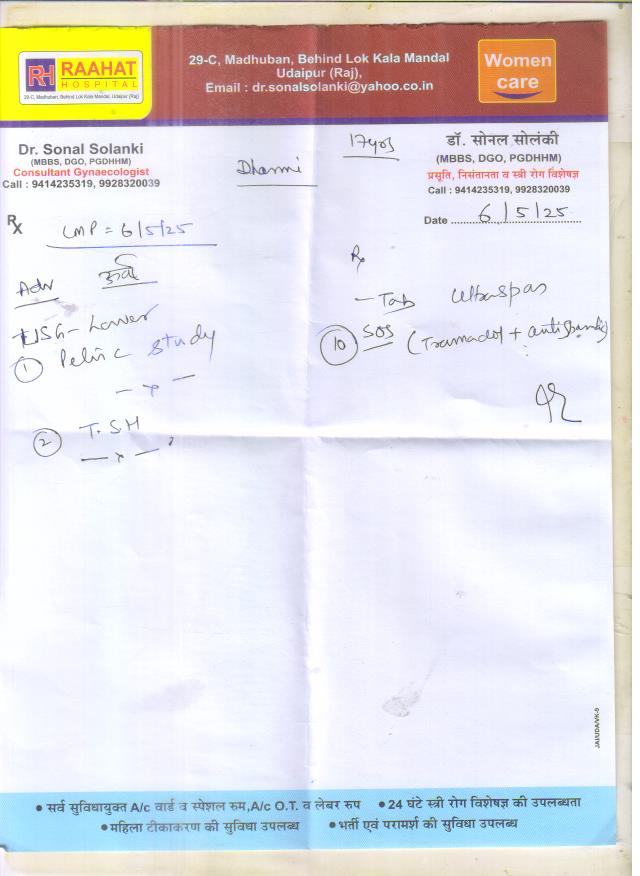 RH RAAHAT
HOSPITAL
29-C, Madhuban, Behind Lok Kala Mandal, Udaipur (Raj)
29-C, Madhuban, Behind Lok Kala Mandal
Udaipur (Raj),
Email : dr.sonalsolanki@yahoo.co.in
Women
care
Dr. Sonal Solanki
(MBBS, DGO, PGDHHM)
Consultant Gynaecologist
Call : 9414235319, 9928320039
17yrs
डॉ. सोनल सोलंकी
(MBBS, DGO, PGDHHM)
प्रसूति, निसंतानता व स्त्री रोग विशेषज्ञ
Call : 9414235319, 9928320039
Date 6/5/25
Rx
LMP = 6/5/25
Adv
USG - Lower
① Pelvic study
— x —
② T.SH
— x —
Rx
- Tab Ultraspas
⑩ SOS (Tramadol +
JAI/UDA/VK-9
• सर्व सुविधायुक्त A/c वार्ड व स्पेशल रुम,A/c O.T. व लेबर रुप • 24 घंटे स्त्री रोग विशेषज्ञ की उपलब्धता
• महिला टीकाकरण की सुविधा उपलब्ध • भर्ती एवं परामर्श की सुविधा उपलब्ध